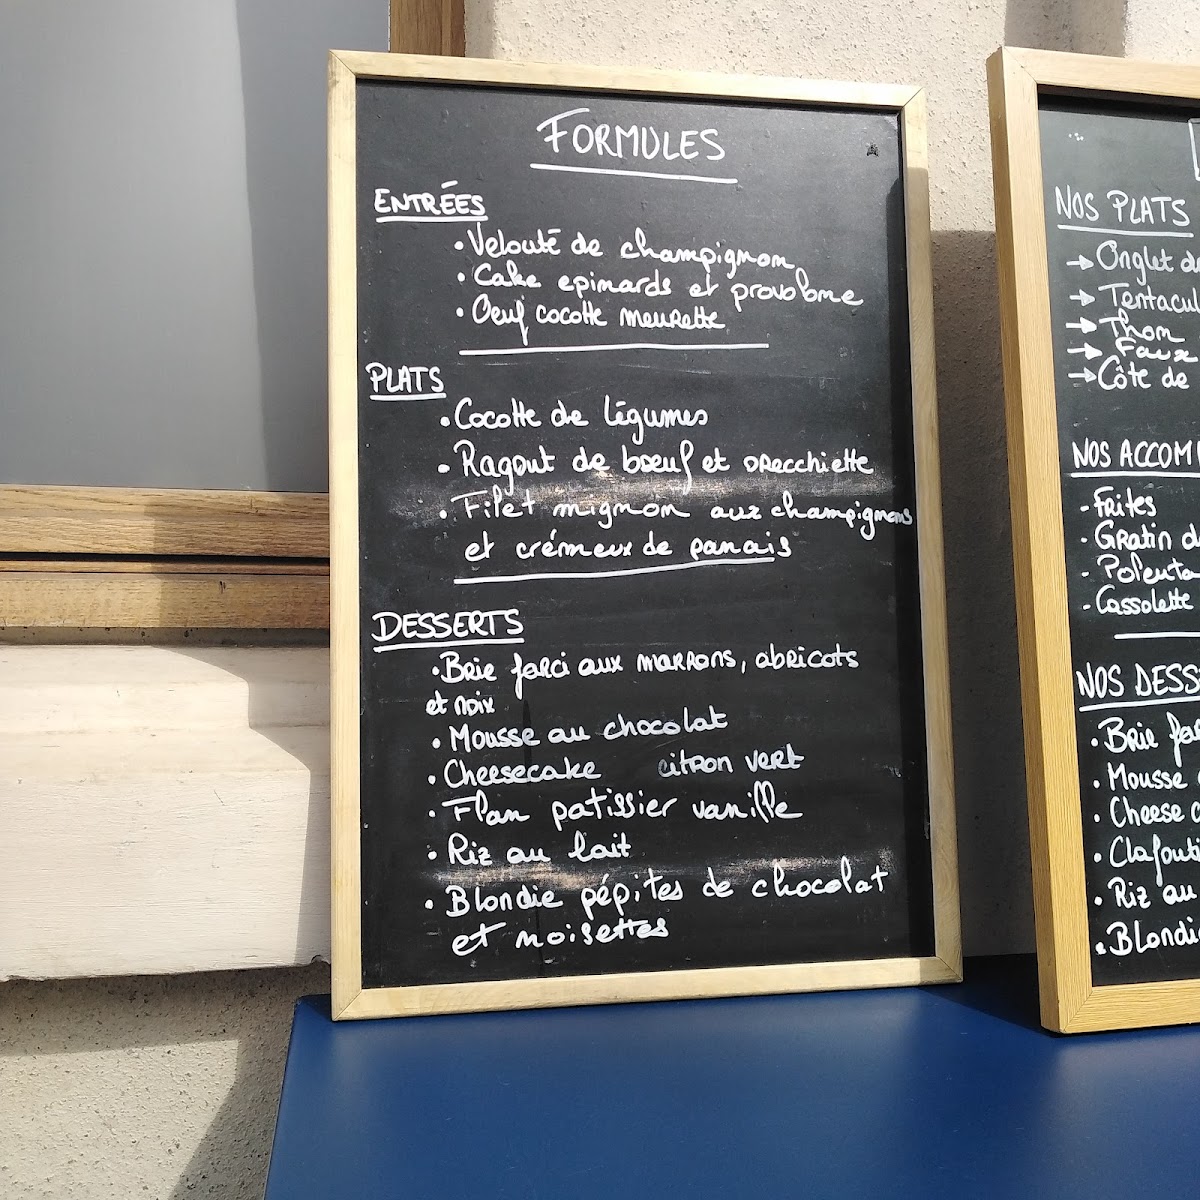 FORMULES
ENTRÉES
• Velouté de champignon
• Cake epinards et provolone
• Oeuf cocotte meurette
PLATS
• Cocotte de légumes
• Ragout de bœuf et orecchiette
• Filet mignon aux champignons
et crémeux de panais
DESSERTS
• Brie farci aux marrons, abricots
et noix
• Mousse au chocolat
• Cheesecake citron vert
• Flan patissier vanille
• Riz au lait
• Blondie pépites de chocolat
et noisettes
NOS PLATS
→ Onglet de
→ Tentacul
→ Thon
→ Faux
→ Côte de
NOS ACCOM
- Frites
- Gratin d
- Polenta
- Cassolette
NOS DESS
• Brie far
• Mousse
• Cheese c
• Clafouti
• Riz au
• Blondi